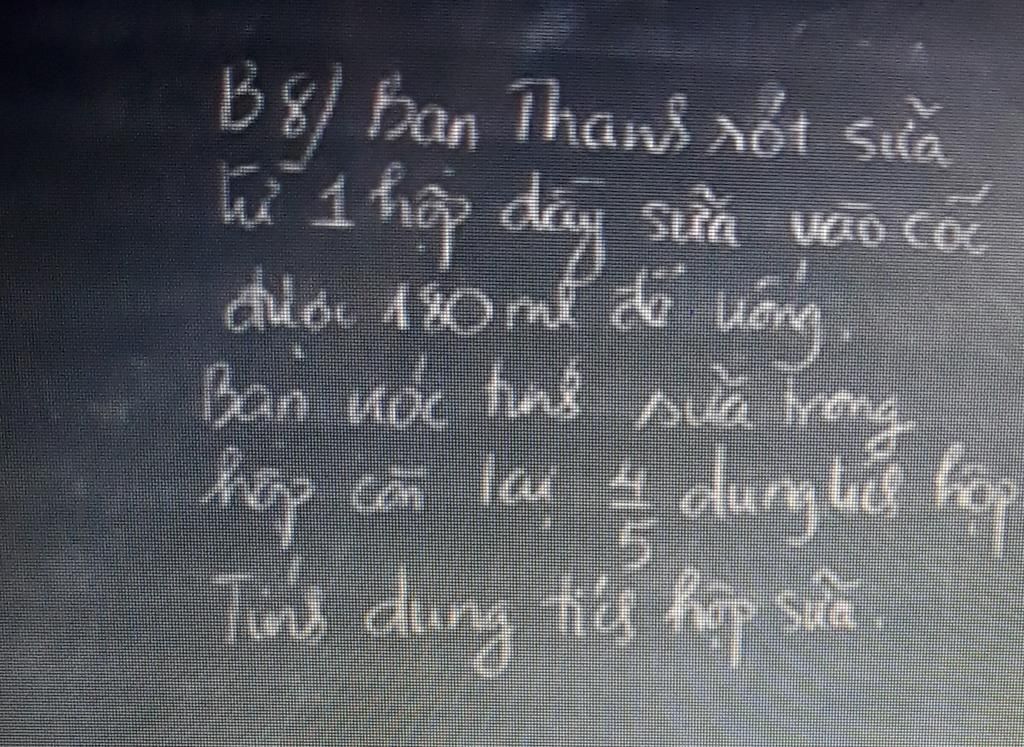 B8) Bạn Thanh rót sữa
từ 1 hộp đầy sữa vào cốc
được 180 ml để uống.
Bạn ước tính sữa trong
hộp còn lại 4/5 dung tích hộp
Tính dung tích hộp sữa.